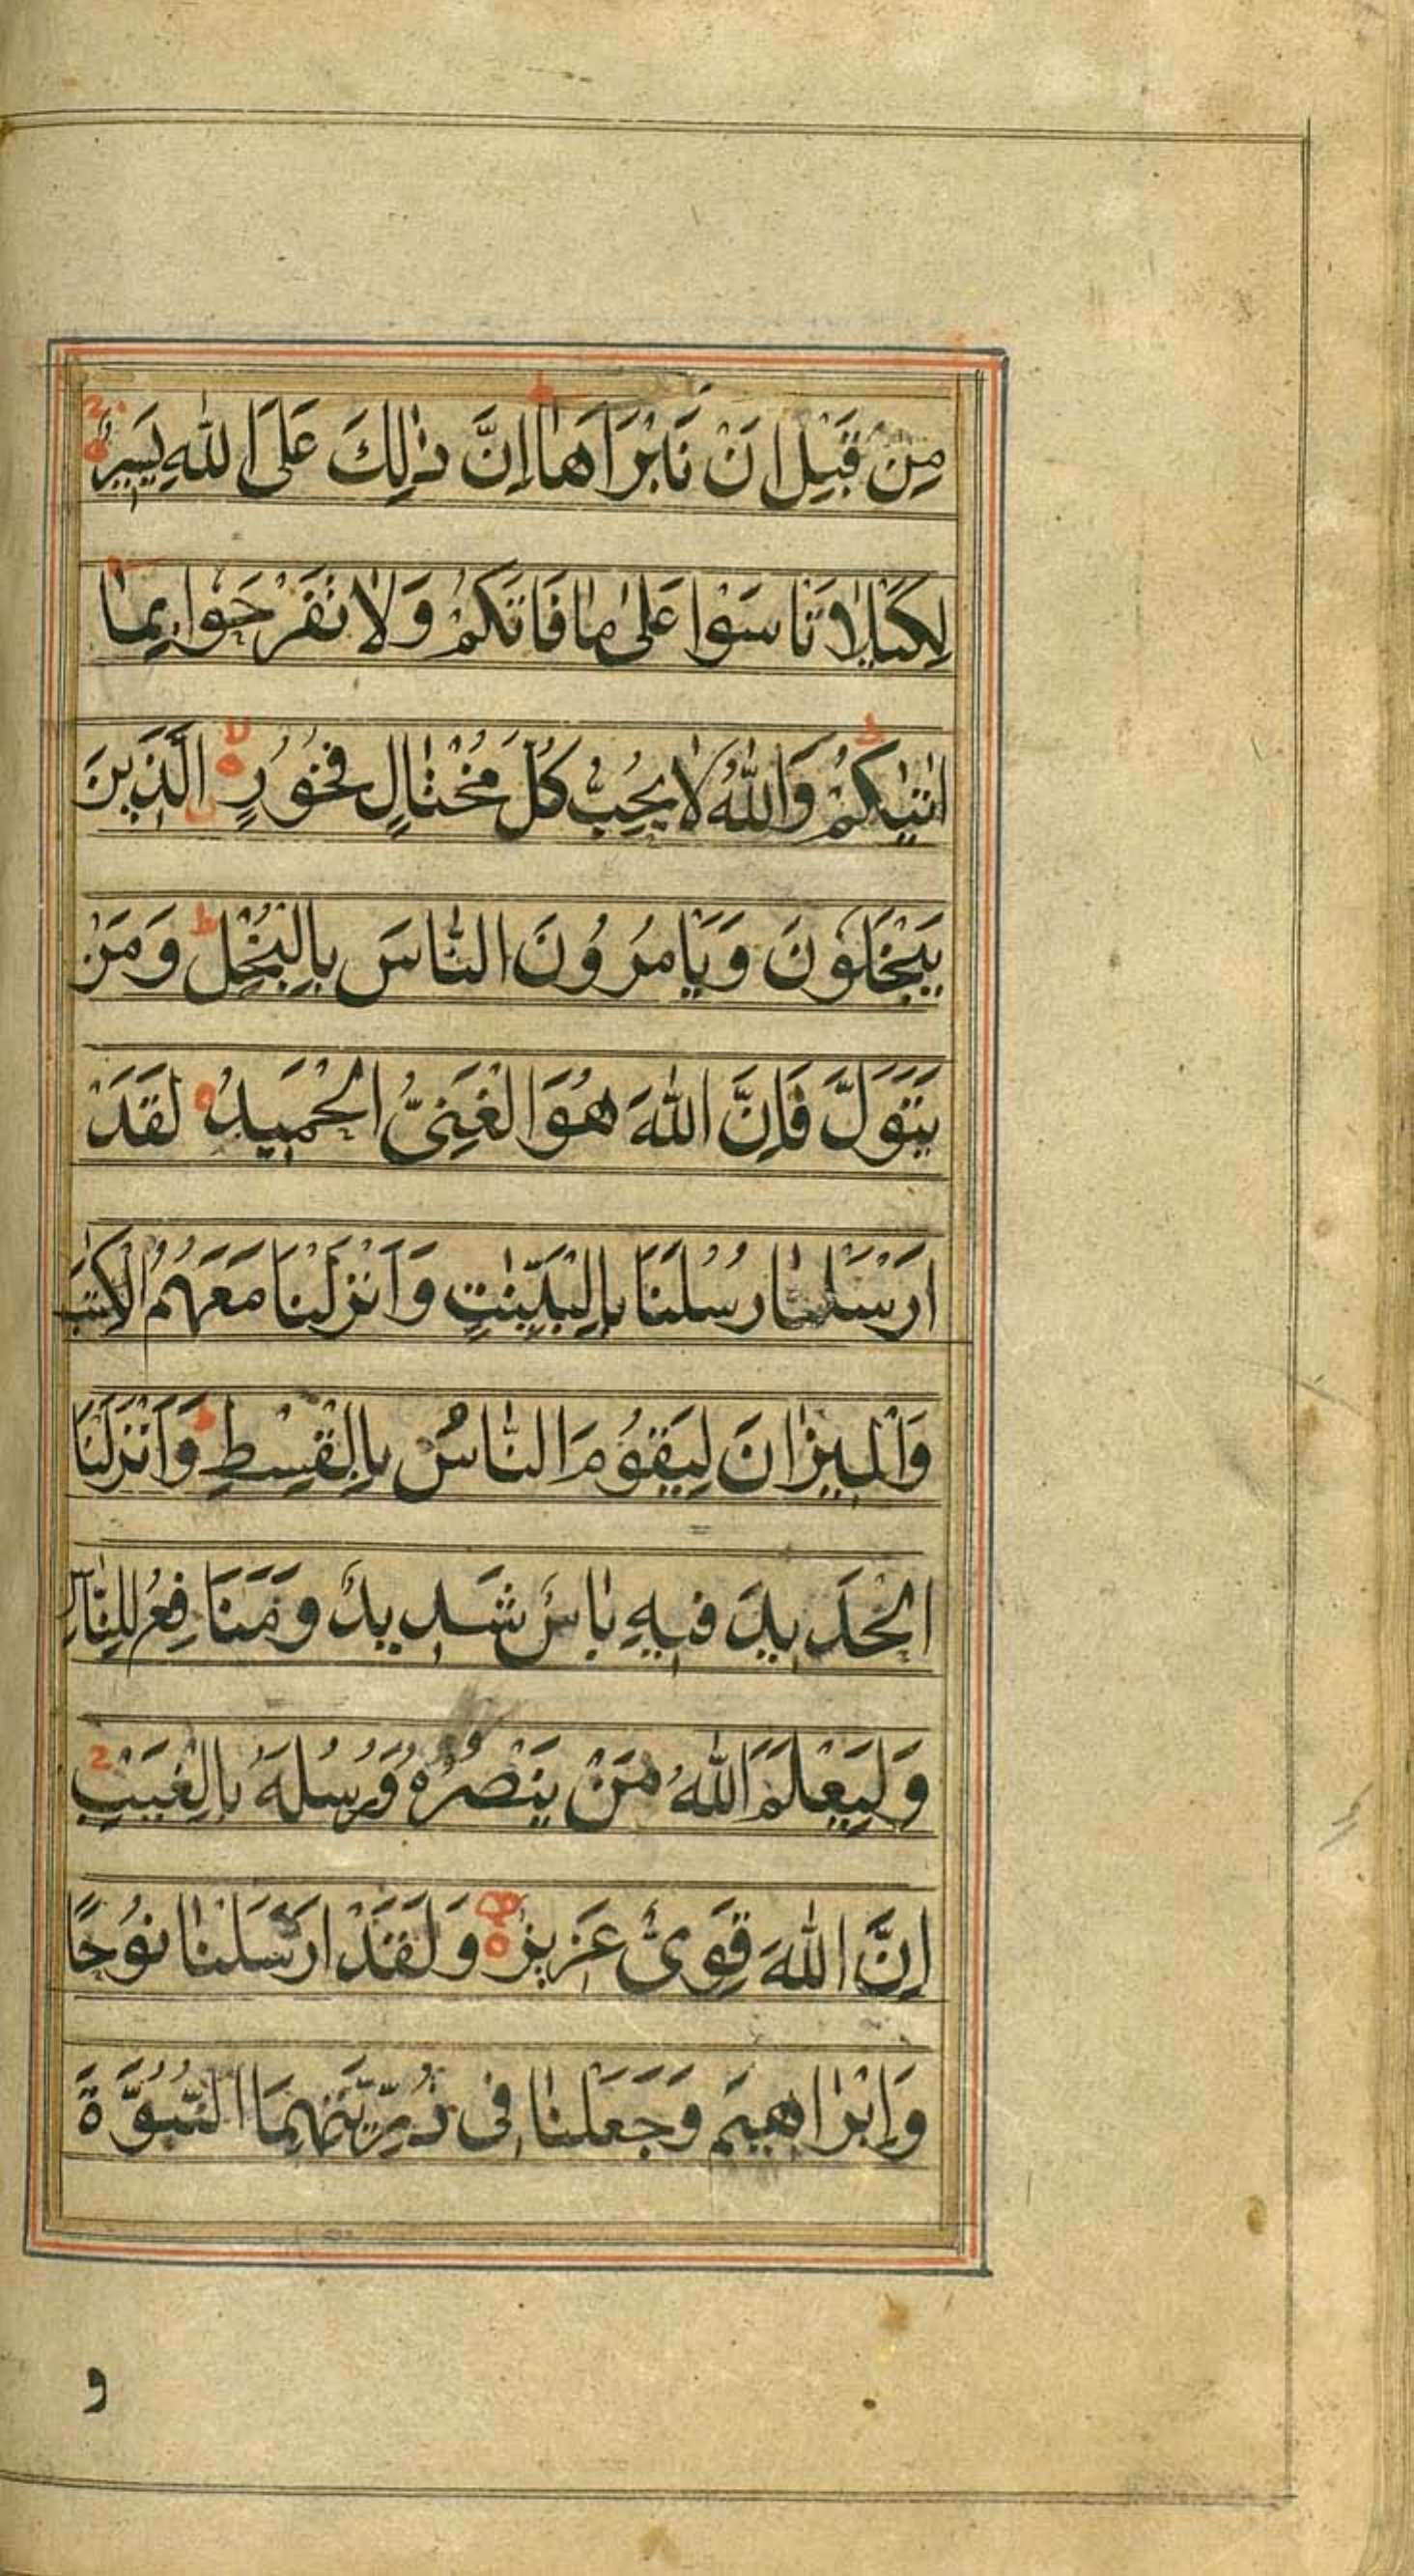 مِنْ قَبْلِ اَنْ نَبْرَاَهَا ط اِنَّ ذٰلِكَ عَلَى اللّٰهِ يَسِيرٌ
لِكَيْلَا تَاْسَوْا عَلٰى مٰا فَاتَكُمْ وَلٰا تَفْرَحُوا بِمٰا
اٰتٰيكُمْ ط وَاللّٰهُ لٰا يُحِبُّ كُلَّ مُخْتٰالٍ فَخُورٍ لا الَّذِينَ
يَبْخَلُونَ وَيَاْمُرُونَ النّٰاسَ بِالْبُخْلِ ط وَمَنْ
يَتَوَلَّ فَاِنَّ اللّٰهَ هُوَ الْغَنِىُّ الْحَمِيدُ لَقَدْ
اَرْسَلْنٰا رُسُلَنَا بِالْبَيِّنٰتِ وَاَنْزَلْنَا مَعَهُمُ الْكِتٰبَ
وَالْمِيزٰانَ لِيَقُومَ النّٰاسُ بِالْقِسْطِ ط وَاَنْزَلْنَا
الْحَدِيدَ فِيهِ بٰاْسٌ شَدِيدٌ وَمَنَافِعُ لِلنّٰاسِ
وَلِيَعْلَمَ اللّٰهُ مَنْ يَنْصُرُهُ وَرُسُلَهُ بِالْغَيْبِ
اِنَّ اللّٰهَ قَوِىٌّ عَزِيزٌ وَلَقَدْ اَرْسَلْنٰا نُوحًا
وَاِبْرٰاهِيمَ وَجَعَلْنٰا فِى ذُرِّيَّتِهِمَا النُّبُوَّةَ
و